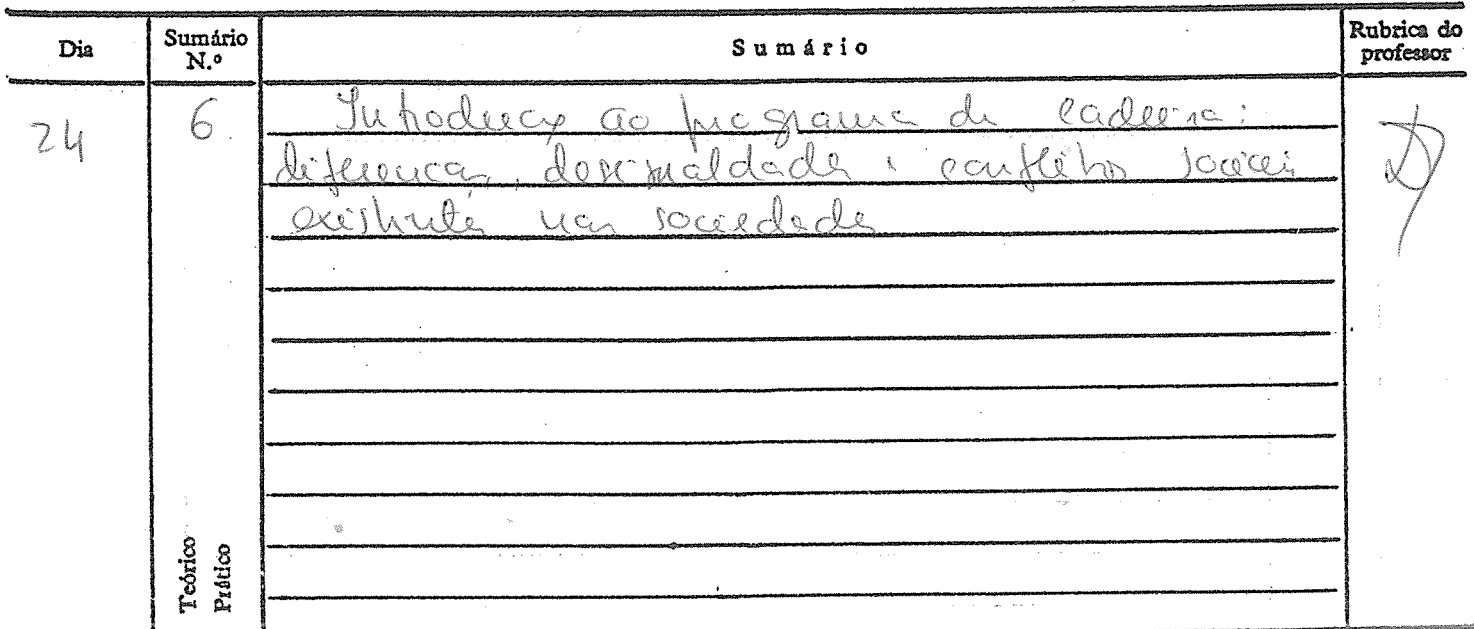 Dia
Sumário N.º
Sumário
Rubrica do professor
24
6.
Introdução ao programa da cadeira:
diferenças, desigualdades e conflitos sociais
existentes nas sociedades
Teórico
Prático